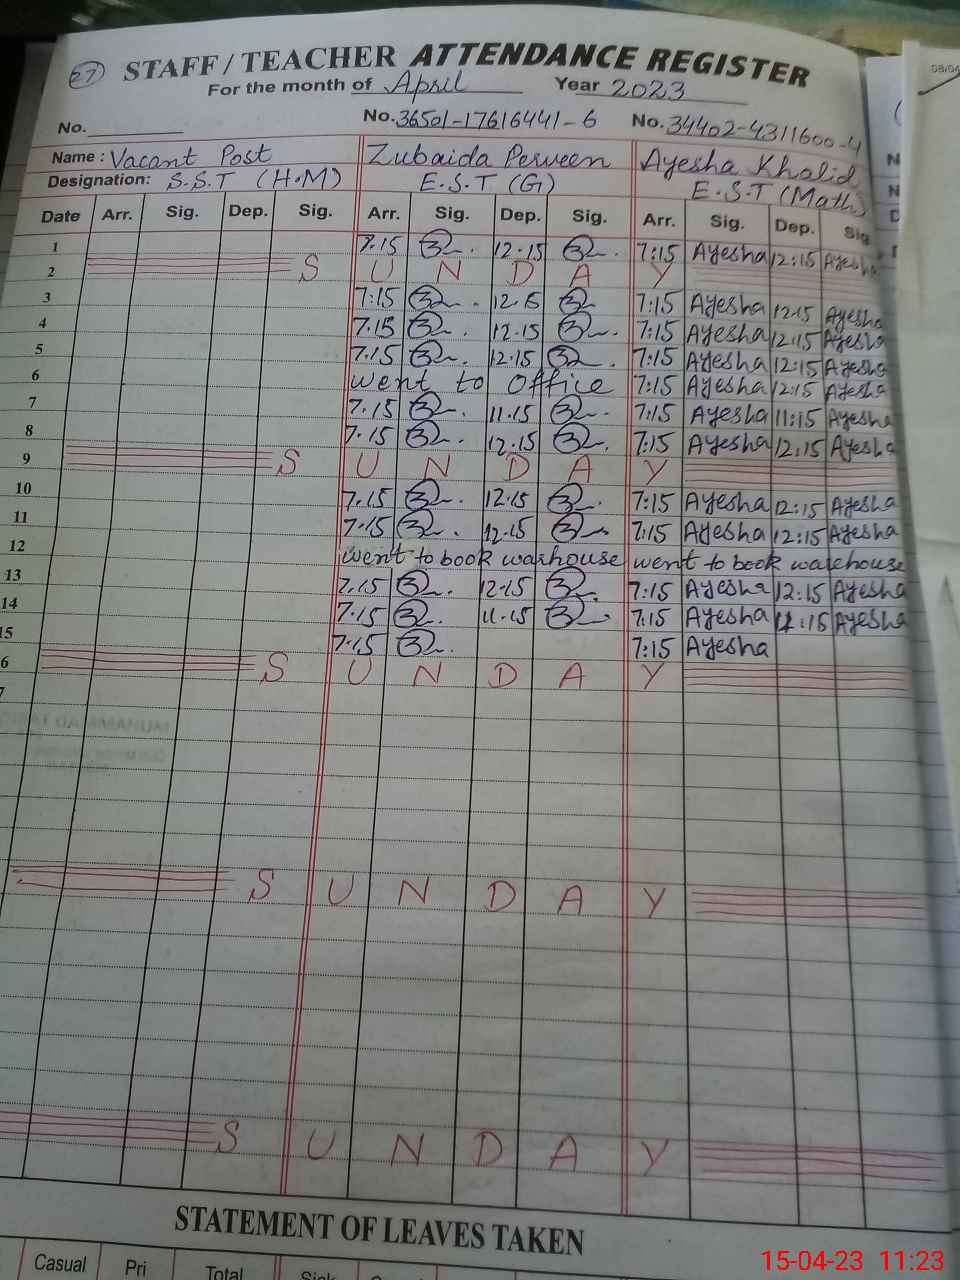 27 STAFF / TEACHER ATTENDANCE REGISTER
For the month of April Year 2023
No. No. 36501-17616441-6 No. 34402-4311600-4
Name : Vacant Post Zubaida Perveen Ayesha Khalid
Designation: S.S.T (H.M) E.S.T (G) E.S.T (Math)
Date Arr. Sig. Dep. Sig. Arr. Sig. Dep. Sig. Arr. Sig. Dep. Sig.
1 7.15 12.15 7:15 Ayesha 12:15 Ayesha
2 S U N D A Y
3 7:15 12.15 7:15 Ayesha 12:15 Ayesha
4 7.15 12.15 7:15 Ayesha 12:15 Ayesha
5 7.15 12.15 7:15 Ayesha 12:15 Ayesha
6 went to office 7:15 Ayesha 12:15 Ayesha
7 7.15 11.15 7:15 Ayesha 11:15 Ayesha
8 7.15 12.15 7:15 Ayesha 12:15 Ayesha
9 S U N D A Y
10 7.15 12.15 7:15 Ayesha 12:15 Ayesha
11 7.15 12.15 7:15 Ayesha 12:15 Ayesha
12 went to book warhouse went to book warehouse
13 7.15 12.15 7:15 Ayesha 12:15 Ayesha
14 7.15 11.15 7:15 Ayesha 11:15 Ayesha
15 7.15 7:15 Ayesha
6 S U N D A Y
7
S U N D A Y
S U N D A Y
STATEMENT OF LEAVES TAKEN
Casual Pri Total Sick
15-04-23 11:23